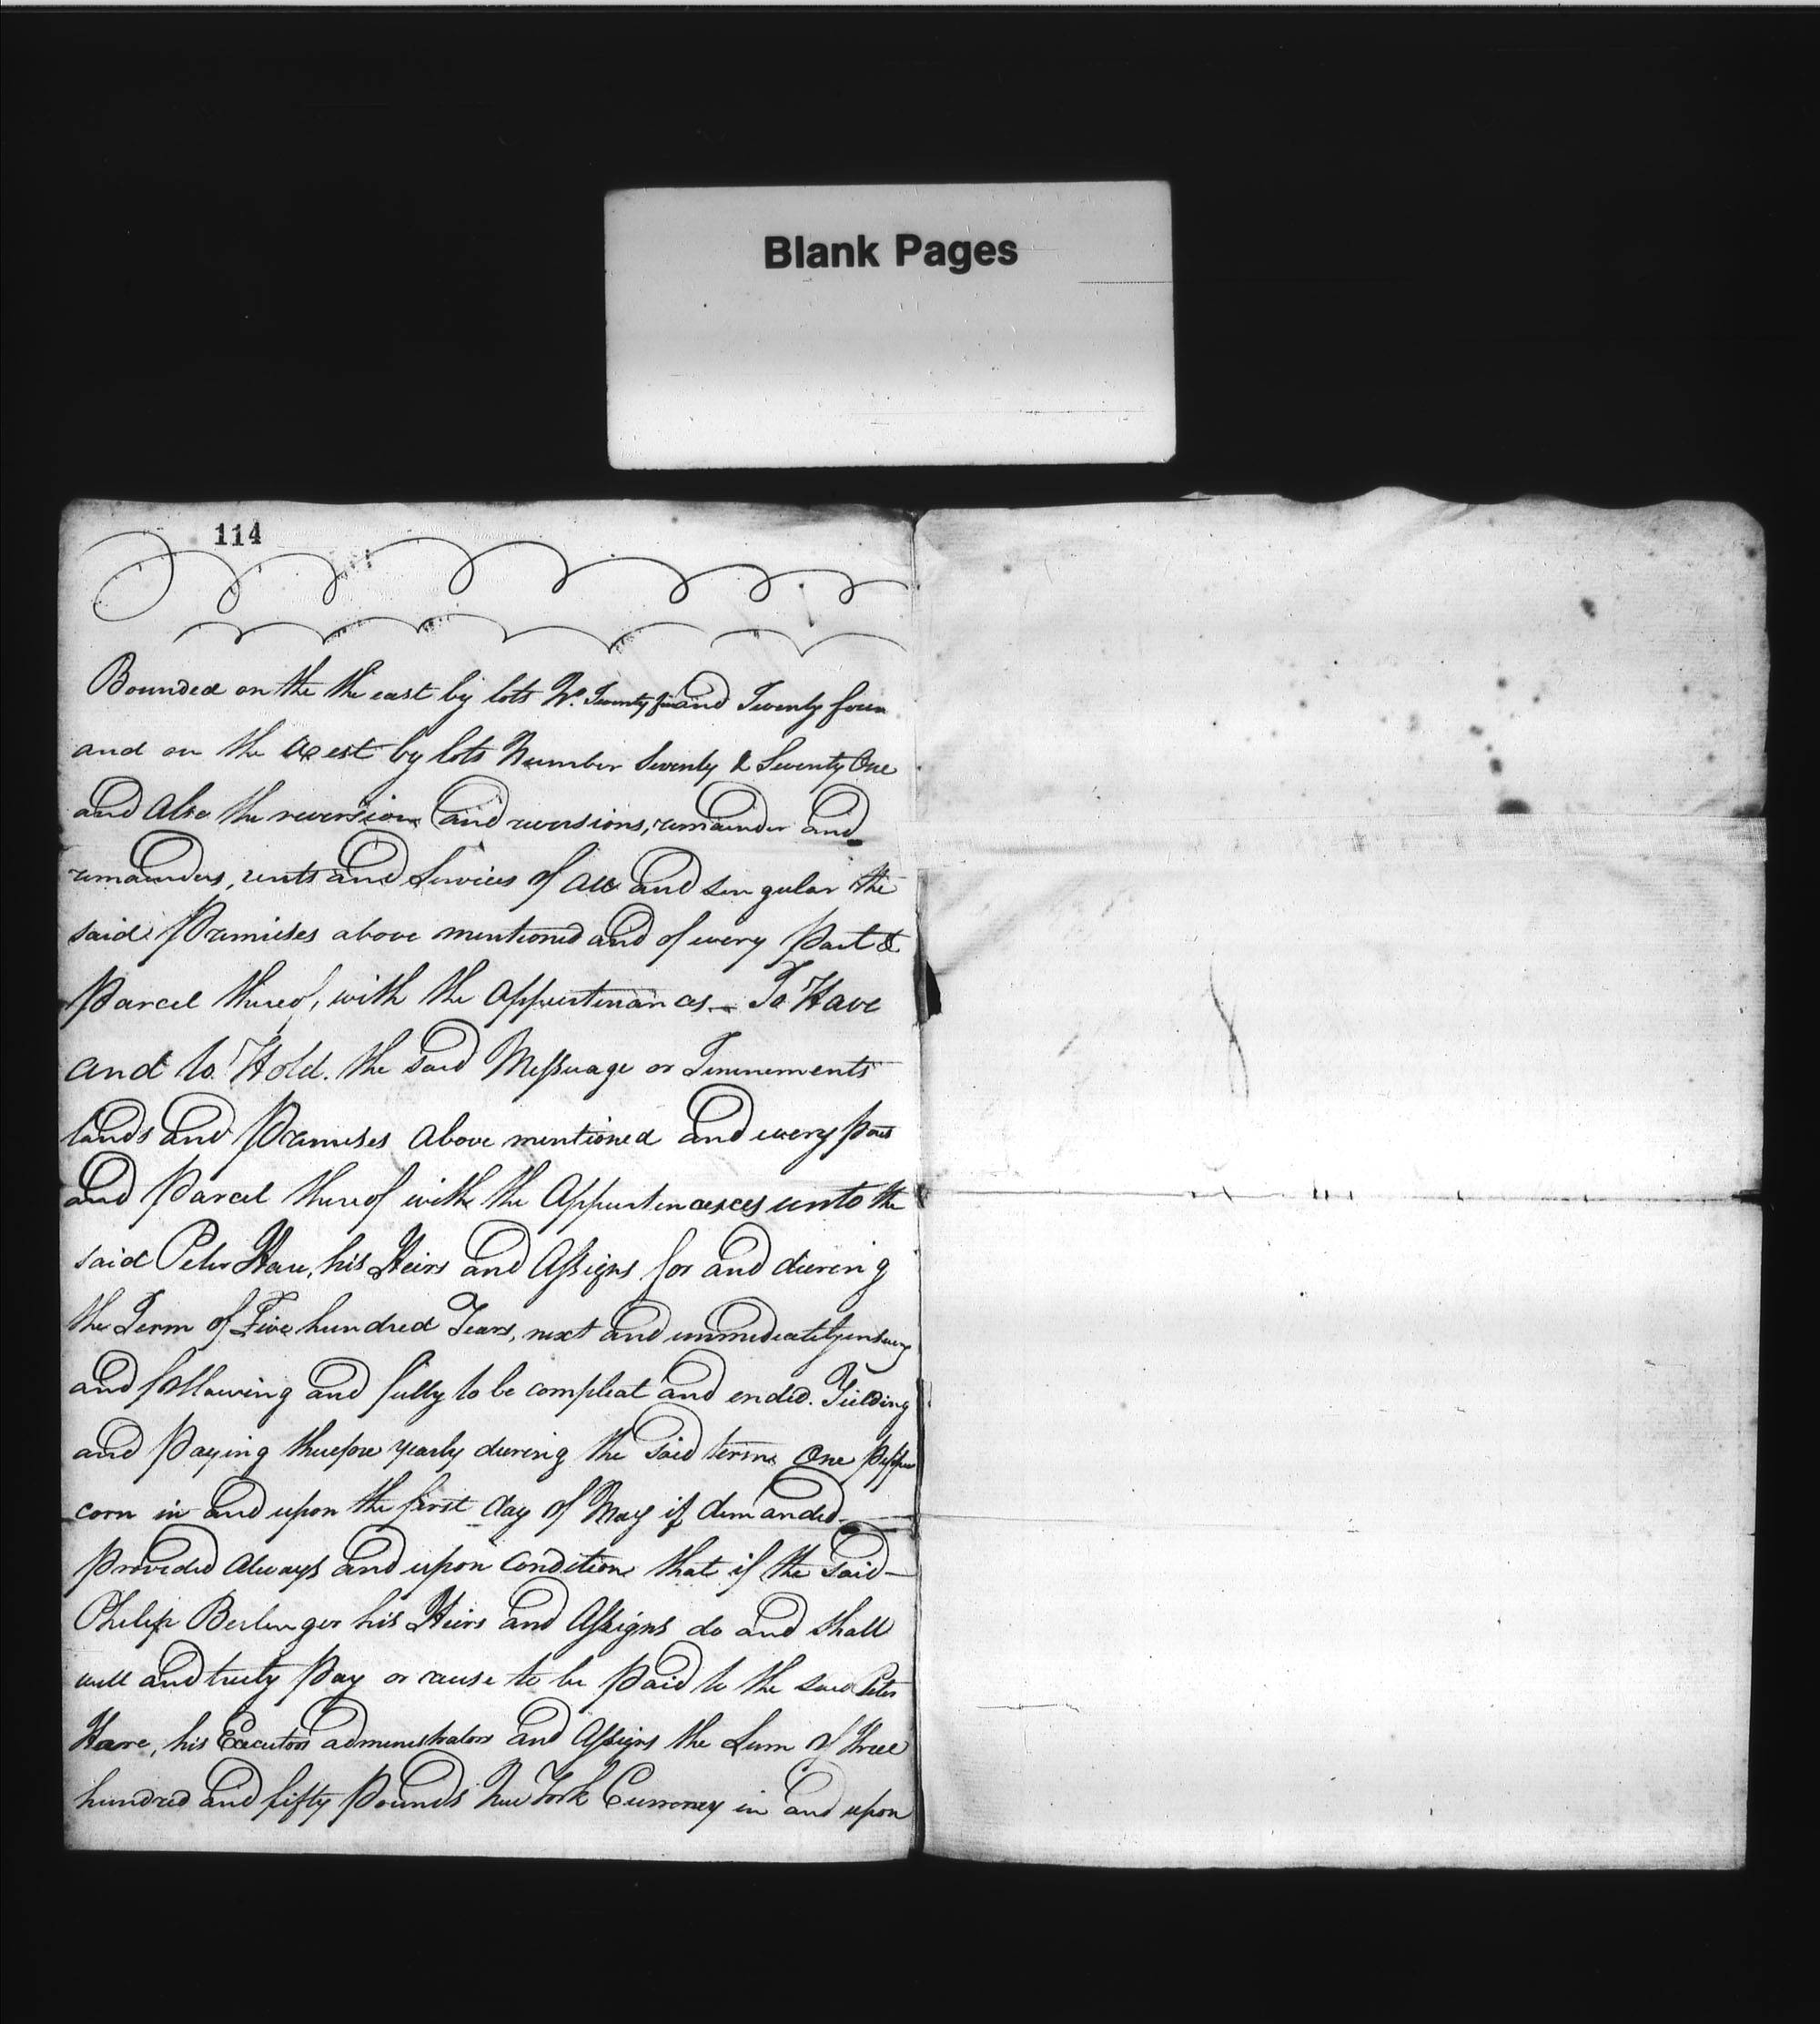 Blank Pages
114
Bounded on the the east by lots No. Twenty and Twenty four
and on the West by lots Number Seventy & Seventy One
and Also the reversion and reversions, remainder and
remainders, rents and Services of All and singular the
said Premises above mentioned and of every Part &
Parcel thereof, with the Appurtenances — To Have
and to Hold. the said Messuage or Tennements
lands and Premises Above mentioned and every Part
and Parcel thereof with the Appurtenances unto the
said Peter Hare, his Heirs and Assigns for and during
the Term of Five hundred Years, next and immediately ensuing
and following and fully to be compleat and ended. Yielding
and Paying therefore yearly during the said term One Pepper
corn in and upon the first day of May if demanded —
Provided Always and upon Condition that if the said —
Philip Berlenger his Heirs and Assigns do and shall
well and truly Pay or cause to be Paid to the said Peter
Hare, his Executors administrators and Assigns the Sum of three
hundred and fifty Pounds New York Currency in and upon